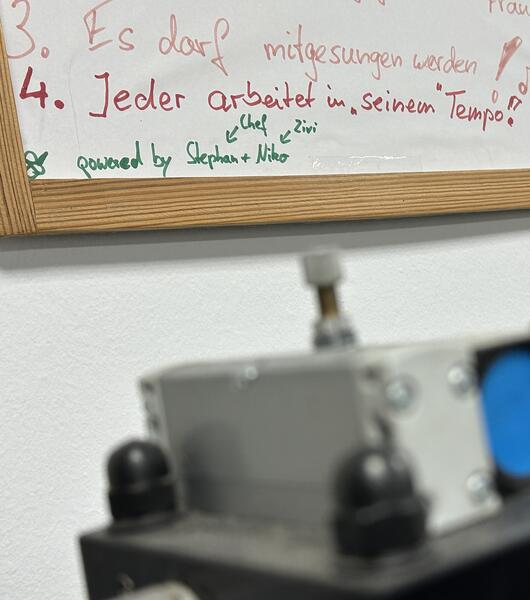 Frau
3. Es darf mitgesungen werden!
4. Jeder arbeitet in „seinem" Tempo!
Chef Zivi
powered by Stephan + Niko